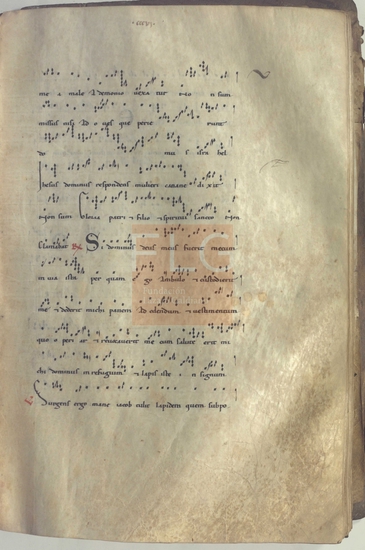 me a male a demonio vexa tur o-io n sum
missus nisi ad o ues que perie runt
do mus isra hel
hesus dominus respondens mulieri cananee dixit
non sum Gloria patri et filio et spiritui sancto non
Si dominus deus meus fuerit mecum
in uia ista per quam e go ambulo et custodierit
me et dederit michi panem ad edendum et uestimentum
quo o peri ar et reuocauerit me cum salute erit mi
chi dominus in refugium et lapis iste in signum
Surgens ergo mane iacob tulit lapidem quem subpo
FLG